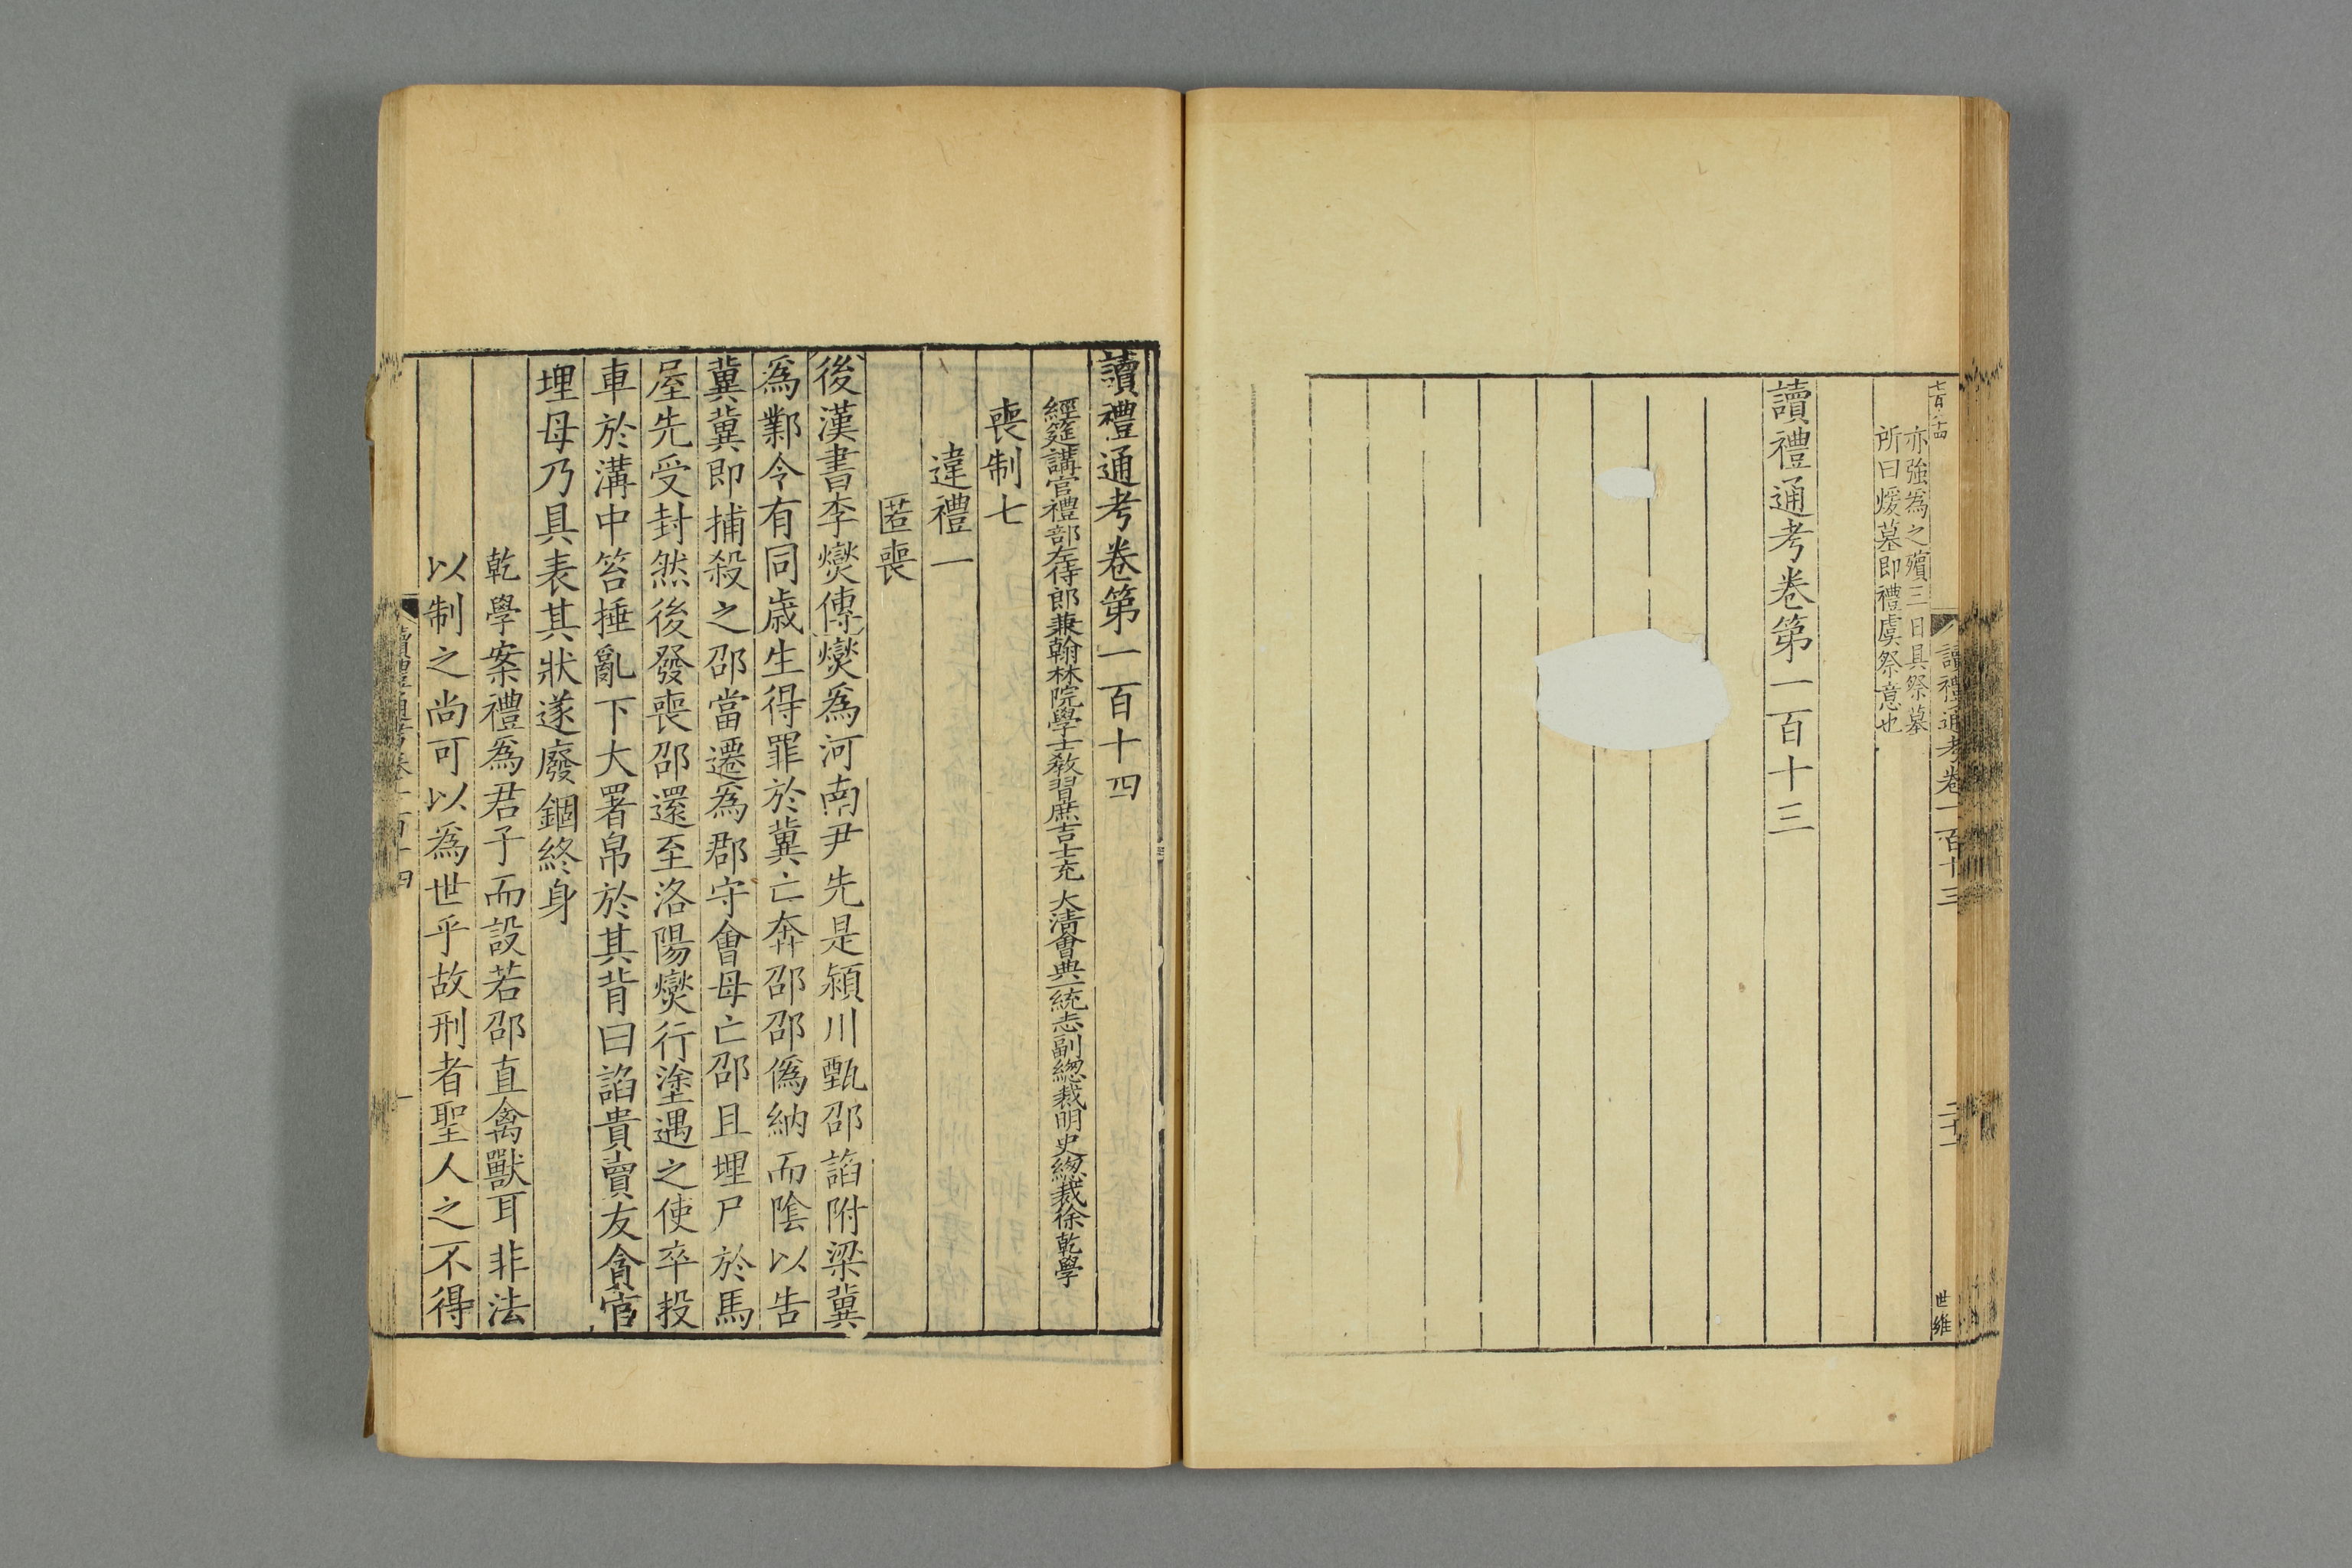 七百六十四
亦強為之殯三日具祭墓
所曰煖墓即禮虞祭意也
讀禮通考卷第一百十三
讀禮通考卷一百十三
二十一
世維
讀禮通考卷第一百十四
經筵講官禮部左侍郎兼翰林院學士教習庶吉士充 大清會典一統志副總裁明史總裁徐乾學
喪制七
違禮一
匿喪
後漢書李燮傳燮爲河南尹先是潁川甄邵諂附梁冀
爲鄴令有同歲生得罪於冀亡奔邵邵僞納而陰以告
冀冀即捕殺之邵當遷爲郡守會母亡邵且埋尸於馬
屋先受封然後發喪邵還至洛陽燮行塗遇之使卒投
車於溝中笞捶亂下大署帛於其背曰諂貴賣友貪官
埋母乃具表其狀遂廢錮終身
乾學案禮爲君子而設若邵直禽獸耳非法
以制之尚可以爲世乎故刑者聖人之不得
讀禮通考卷一百十四
一